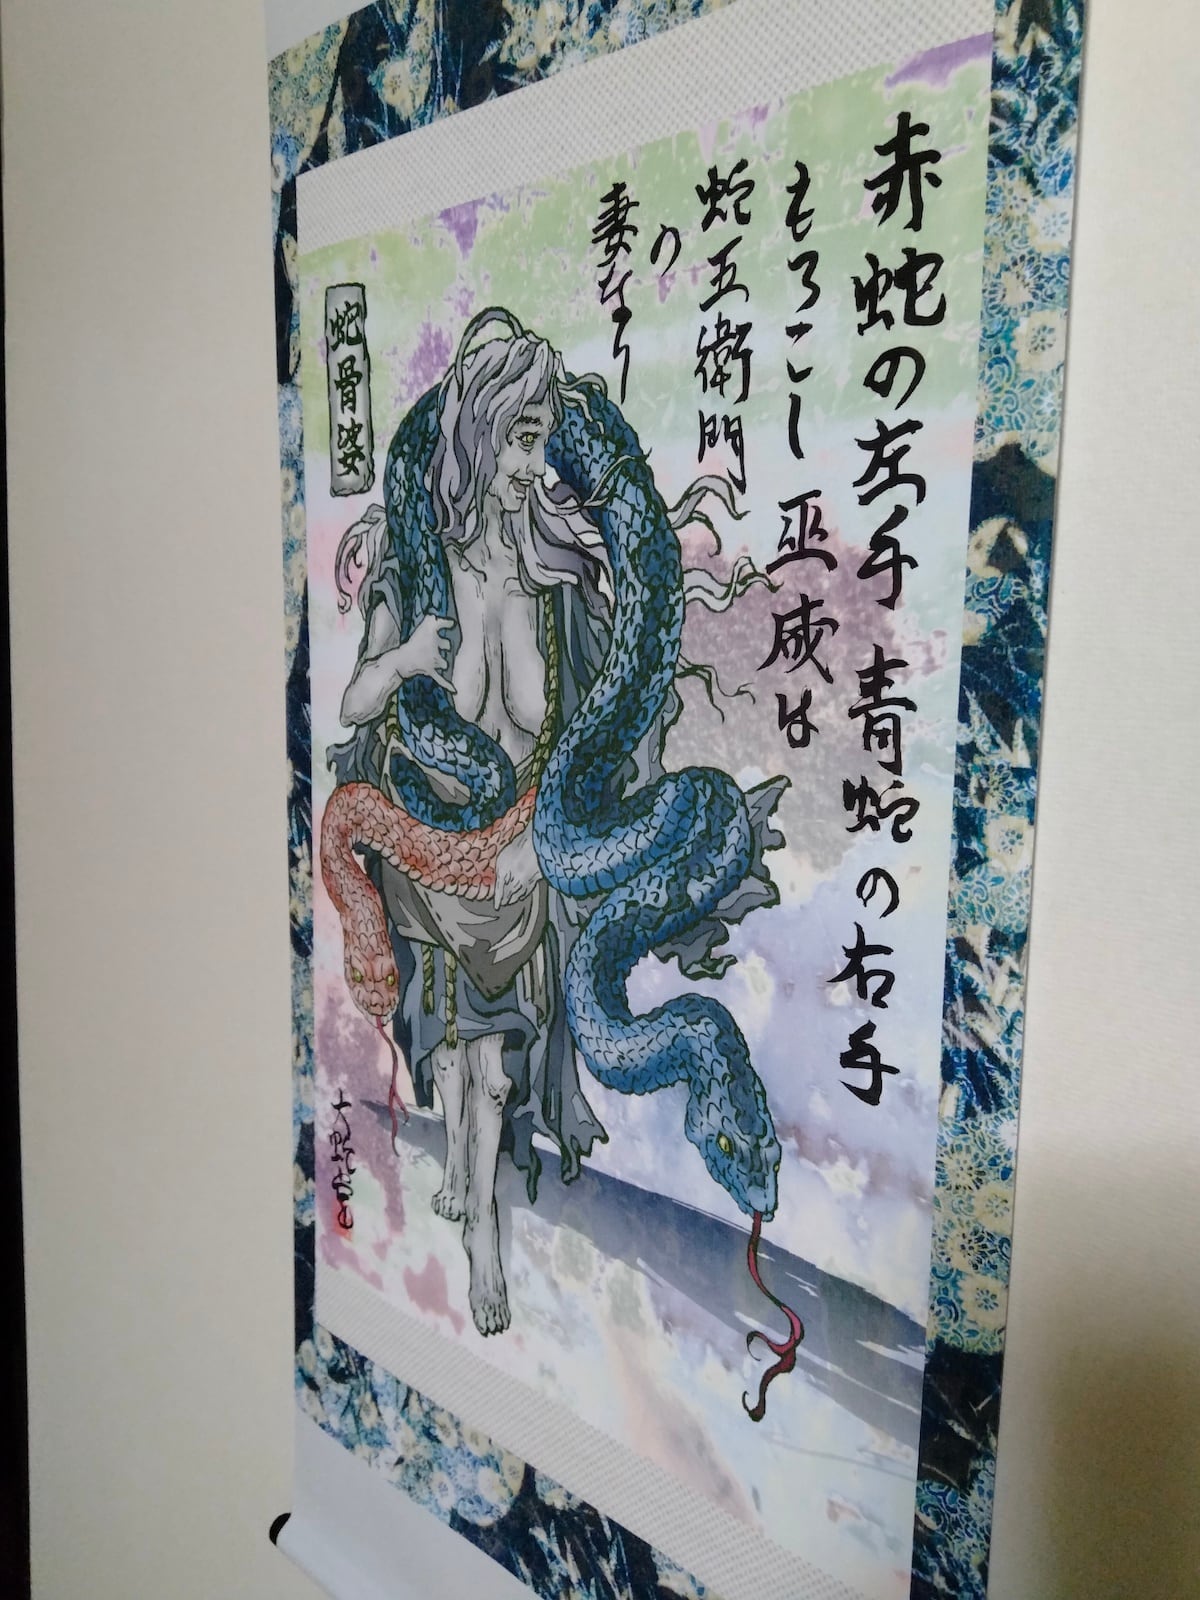 赤蛇の左手 青蛇の右手
もろこし 巫咸は
蛇五衛門
の
妻なり
蛇骨婆
大蛇堂